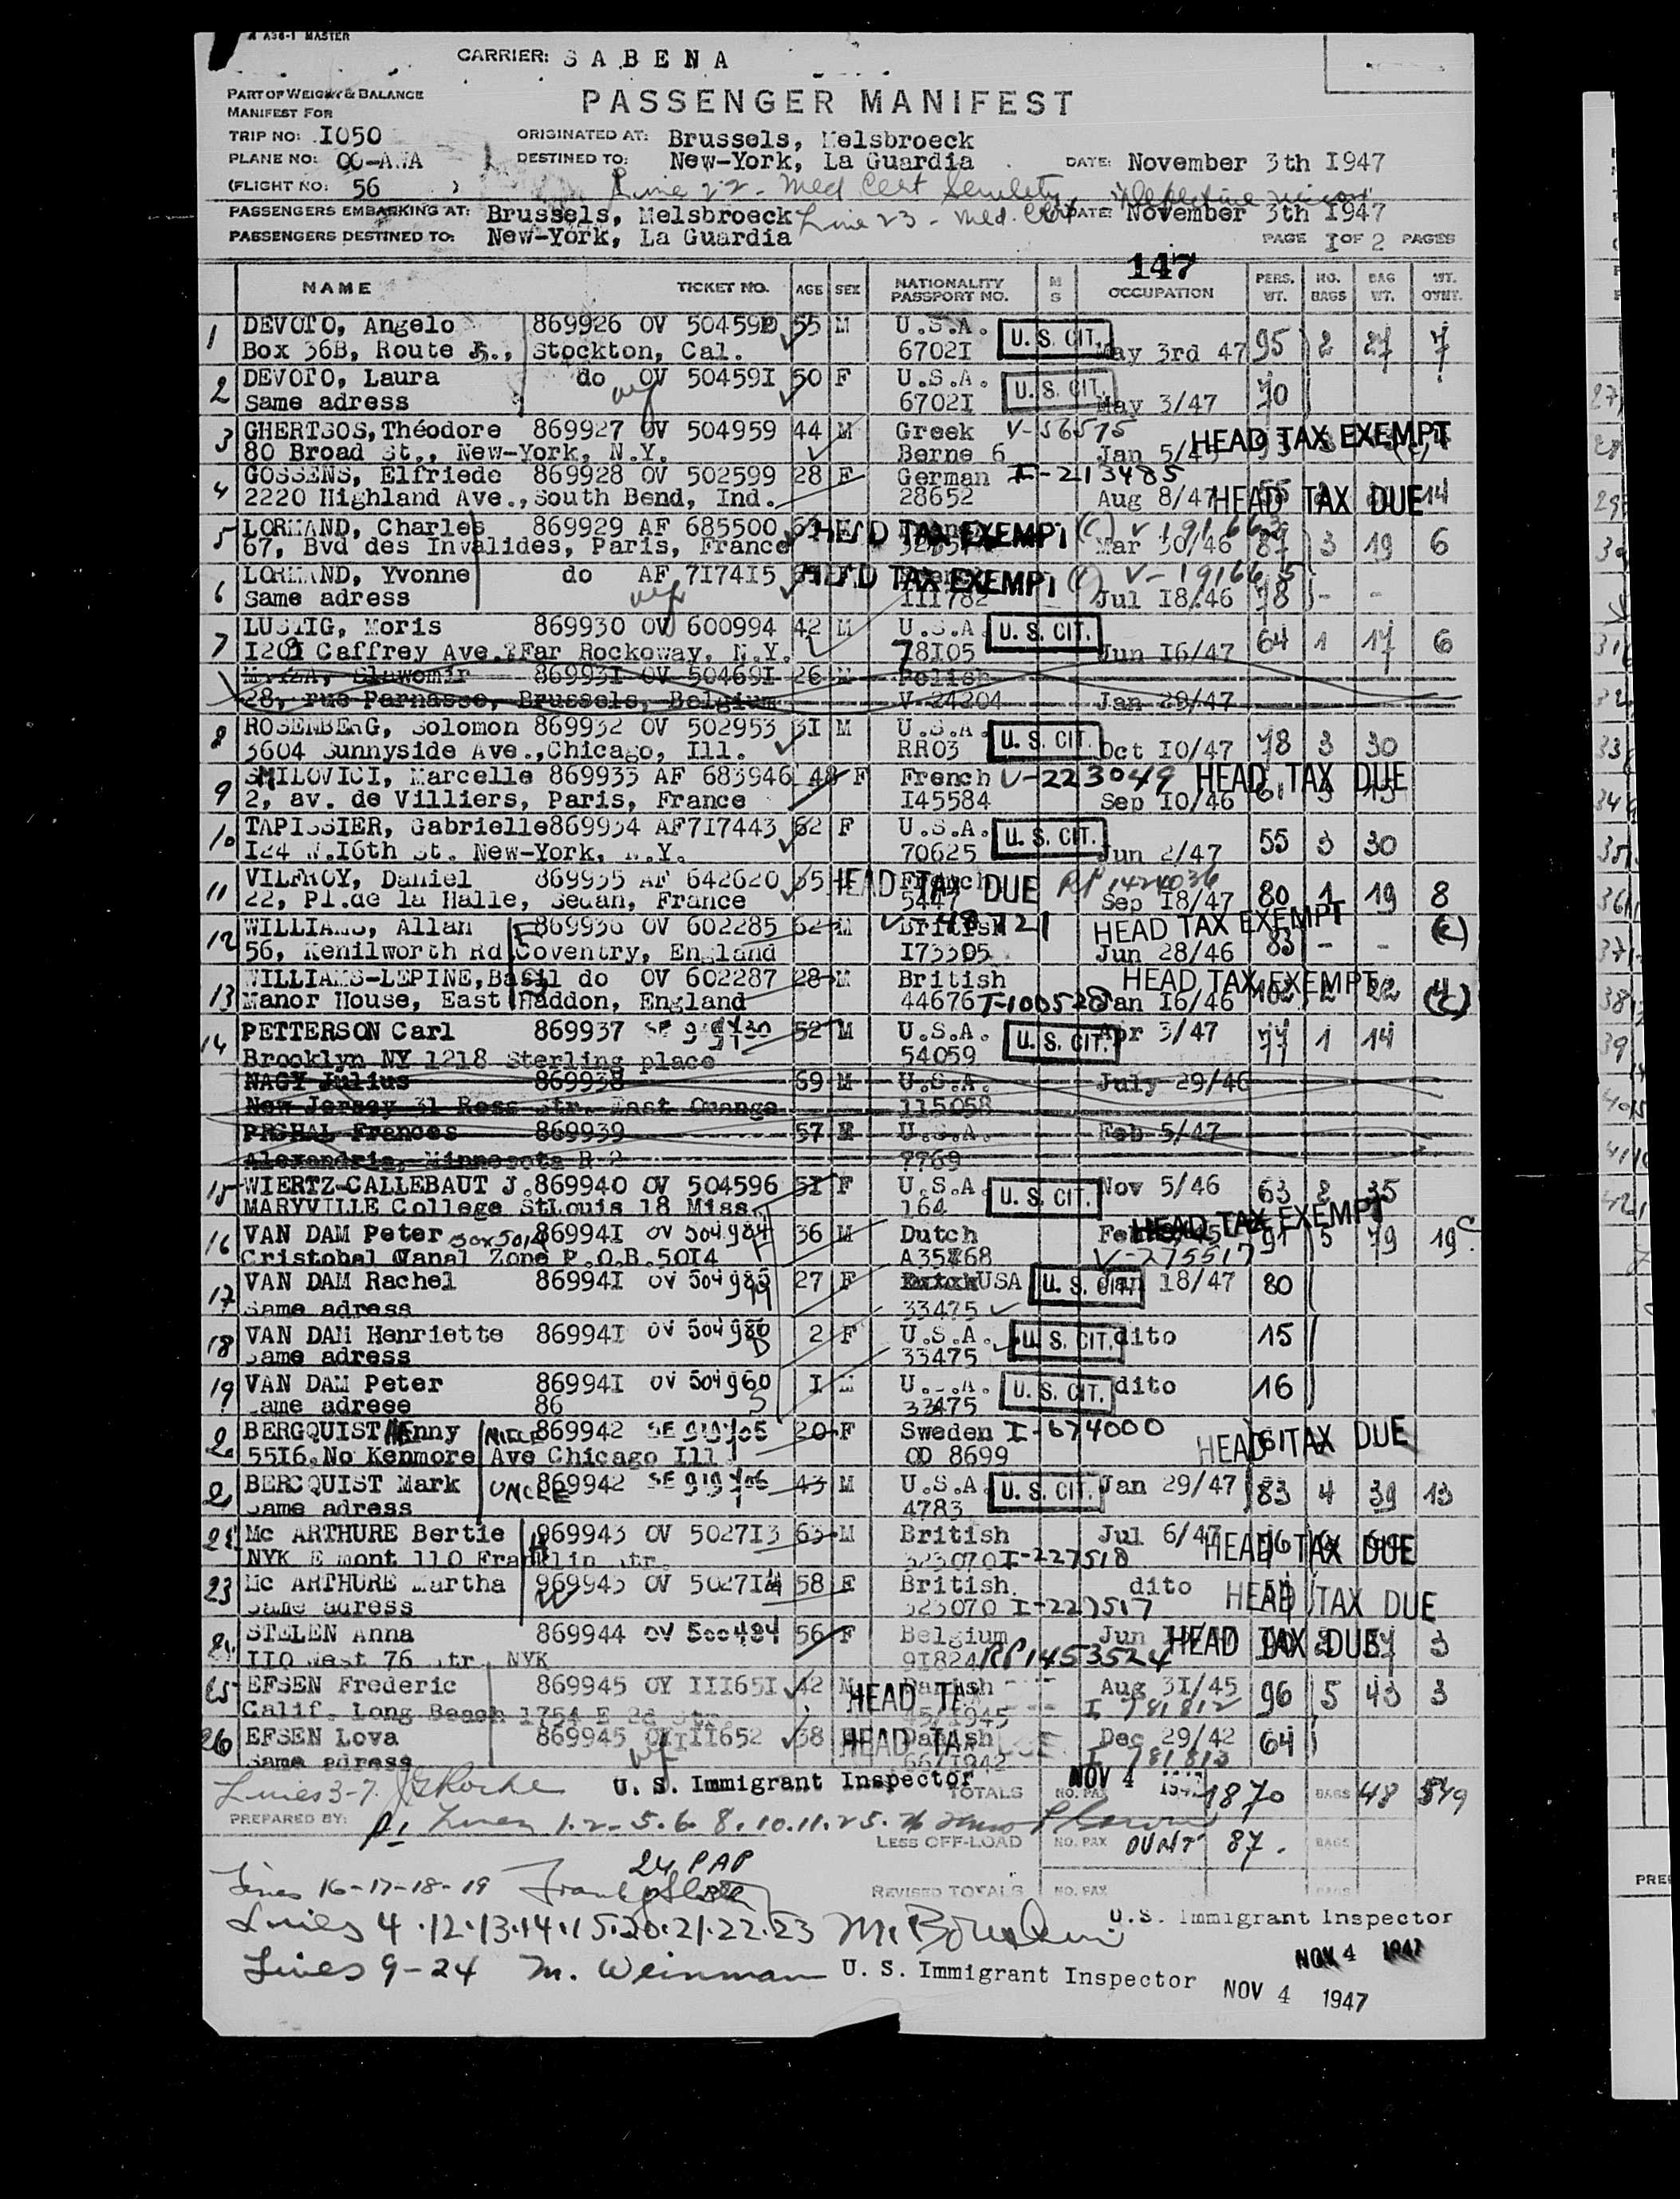 A36-1 MASTER
CARRIER: S A B E N A
PART OF WEIGHT & BALANCE
MANIFEST FOR
PASSENGER MANIFEST
TRIP NO: I050 ORIGINATED AT: Brussels, Melsbroeck
PLANE NO: OO-AWA DESTINED TO: New-York, La Guardia DATE: November 3th I947
(FLIGHT NO: 56 ) Line 22 - Med Cert Senility
PASSENGERS EMBARKING AT: Brussels, Melsbroeck Line 23 - Med. Cert DATE: November 3th I947
PASSENGERS DESTINED TO: New-York, La Guardia PAGE I OF 2 PAGES
147
NAME TICKET NO. AGE SEX NATIONALITY PASSPORT NO. M S OCCUPATION PERS. WT. NO. BAGS BAG WT. WT. OVWT.
1 DEVOTO, Angelo 869926 OV 504590 55 M U.S.A. U.S. CIT. 95 2 27 7
Box 36B, Route 5., Stockton, Cal. 6702I May 3rd 47
2 DEVOTO, Laura do OV 50459I 50 F U.S.A. U.S. CIT. 70
Same adress 6702I May 3/47
3 GHERTSOS, Théodore 869927 OV 504959 44 M Greek V-56515 HEAD TAX EXEMPT
80 Broad St., New-York, N.Y. Berne 6 Jan 5/4
4 GOSSENS, Elfriede 869928 OV 502599 28 F German I-213485
2220 Highland Ave., South Bend, Ind. 28652 Aug 8/47 HEAD TAX DUE 14
5 LORMAND, Charles 869929 AF 685500 63 HEAD TAX EXEMPT (C) V 191663
67, Bvd des Invalides, Paris, France Mar 30/46 87 3 19 6
6 LORMAND, Yvonne do AF 7I74I5 HEAD TAX EXEMPT V-191665
Same adress III782 Jul I8/46 78 - -
7 LUSTIG, Moris 869930 OV 600994 42 M U.S.A. U.S. CIT. 64 1 17 6
I201 Caffrey Ave. Far Rockoway, N.Y. 78I05 Jun I6/47
Slawomir 86993I OV 50469I 26 M Polish
28, rue Parnasse, Brussels, Belgium V 24204 Jan 29/47
8 ROSENBERG, Solomon 869932 OV 502953 3I M U.S.A. U.S. CIT. 78 3 30
3604 Sunnyside Ave., Chicago, Ill. RR03 Oct I0/47
9 SMILOVICI, Marcelle 869933 AF 683946 48 F French V-223049 HEAD TAX DUE
2, av. de Villiers, Paris, France I45584 Sep I0/46
10 TAPISSIER, Gabrielle 869934 AF7I7443 62 F U.S.A. U.S. CIT. 55 3 30
I24 W.I6th St. New-York, N.Y. 70625 Jun 2/47
11 VILFROY, Daniel 869935 AF 642620 35 HEAD TAX DUE French RP 1424036
22, Pl.de la Halle, Sedan, France 5447 Sep I8/47 80 1 19 8
12 WILLIAMS, Allan 869936 OV 602285 62 M British HEAD TAX EXEMPT (C)
56, Kenilworth Rd Coventry, England I73305 Jun 28/46 83 - -
13 WILLIAMS-LEPINE, Basil do OV 602287 28 M British HEAD TAX EXEMPT
Manor House, East Haddon, England 44676 T-100528 Jan I6/46 102 2 22 (C)
14 PETTERSON Carl 869937 52 M U.S.A. U.S. CIT. Apr 3/47 77 1 14
Brooklyn NY 1218 Sterling place 54059
NAGY Julius 869938 69 M U.S.A. July 29/46
New Jersey 31 Ross Str. East Orange 115058
Frances 869939 57 U.S.A. Feb 5/47
Alexandria, Minnesota R 2 7769
15 WIERTZ-CALLEBAUT J. 869940 OV 504596 5I F U.S.A. U.S. CIT. Nov 5/46 63 2 35
MARYVILLE College StLouis 18 Miss. 164
16 VAN DAM Peter Box 5014 86994I OV 504984 36 M Dutch HEAD TAX EXEMPT 91 5 79 19 C
Cristobal Canal Zone P.O.B.50I4 A35868 V-275517
17 VAN DAM Rachel 86994I OV 504985 27 F USA U.S. CIT. 18/47 80
Same adress 33475
18 VAN DAM Henriette 86994I OV 504980 2 F U.S.A. U.S. CIT. dito 15
Same adress 33475
19 VAN DAM Peter 86994I OV 504960 I M U.S.A. U.S. CIT. dito 16
Same adress 86 33475
BERGQUIST Anny NIECE 869942 SE 20 F Sweden I-674000 HEAD TAX DUE
55I6 No Kenmore Ave Chicago Ill OD 8699 61
BERGQUIST Mark UNCLE 869942 SE 43 M U.S.A. U.S. CIT. Jan 29/47 83 4 39 13
Same adress 4783
22 Mc ARTHURE Bertie 869943 OV 5027I3 63 M British Jul 6/47 HEAD TAX DUE
NYK E mont 110 Franklin Str. 323070 I-227518
23 Mc ARTHURE Martha 869943 OV 5027I4 58 F British dito HEAD TAX DUE
Same adress 323070 I-227517
24 STELEN Anna 869944 OV 500484 56 F Belgium Jun HEAD TAX DUE 3
II0 West 76 Str. NYK 91824 RP1453524
25 EFSEN Frederic 869945 OY III65I 42 M HEAD TA Danish Aug 3I/45 96 5 43 3
Calif. Long Beach 1754 E 2d Str. I 781812
26 EFSEN Lova 869945 OY III652 38 HEAD TA Danish Dec 29/42 64
Same adress I 781813
Lines 3-7. U. S. Immigrant Inspector NOV 4 1947
TOTALS NO. PAX 1870 BAGS 48 549
PREPARED BY: Lines 1.2-5.6 8.10.11.25.26
LESS OFF-LOAD NO. PAX 87. BAGS
24 PAP
Lines 16-17-18-19 REVISED TOTALS NO. PAX BAGS
Lines 4.12.13.14.15.20.21.22.23 U.S. Immigrant Inspector
NOV 4 1947
Lines 9-24 M. Weinman U. S. Immigrant Inspector NOV 4 1947